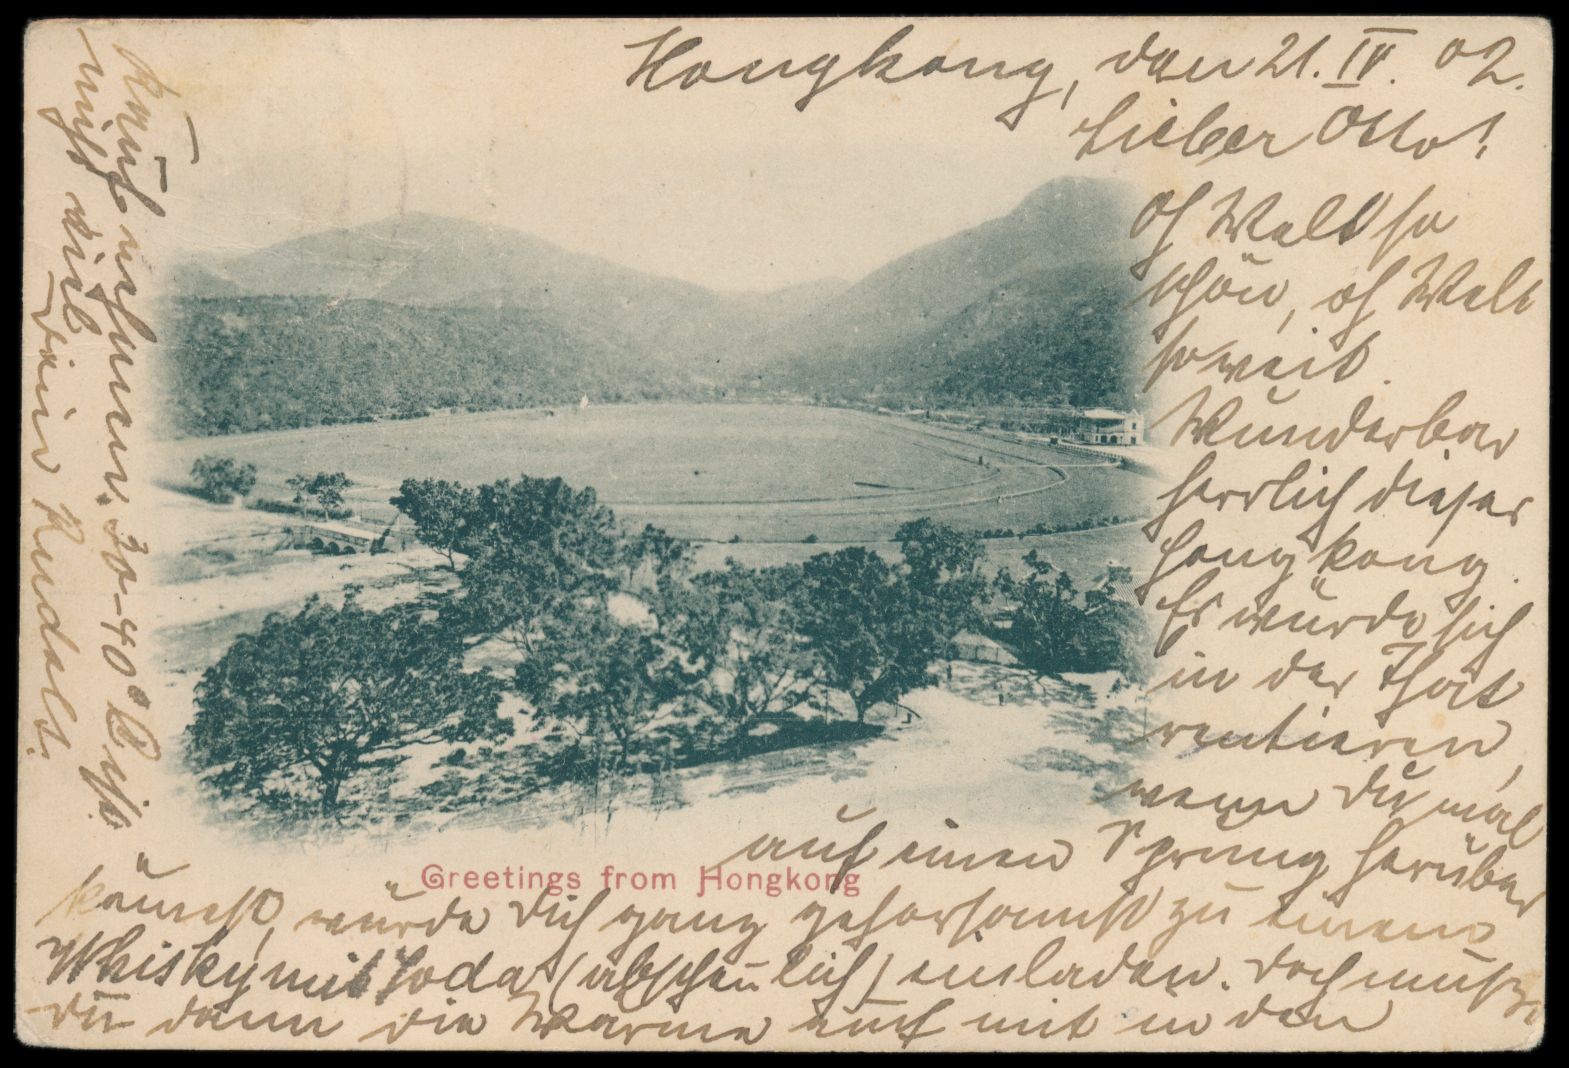 Hongkong, den 21. IV. 02.
Lieber Otto!
Oh Welt so
schön, oh Welt
so weit.
Wunderbar
herrlich dieses
Hongkong.
Es würde sich
in der That
rentieren,
wenn Du mal
auf einen Sprung herüber
kämest, würde Dich ganz gehorsamst zu einem
Whisky mit Soda (abscheulich) einladen. Doch musst
Du dann die Wärme auch mit in den
Kauf nehmen. 30-40° C ist
nicht viel
Dein Rudolf.
Greetings from Hongkong